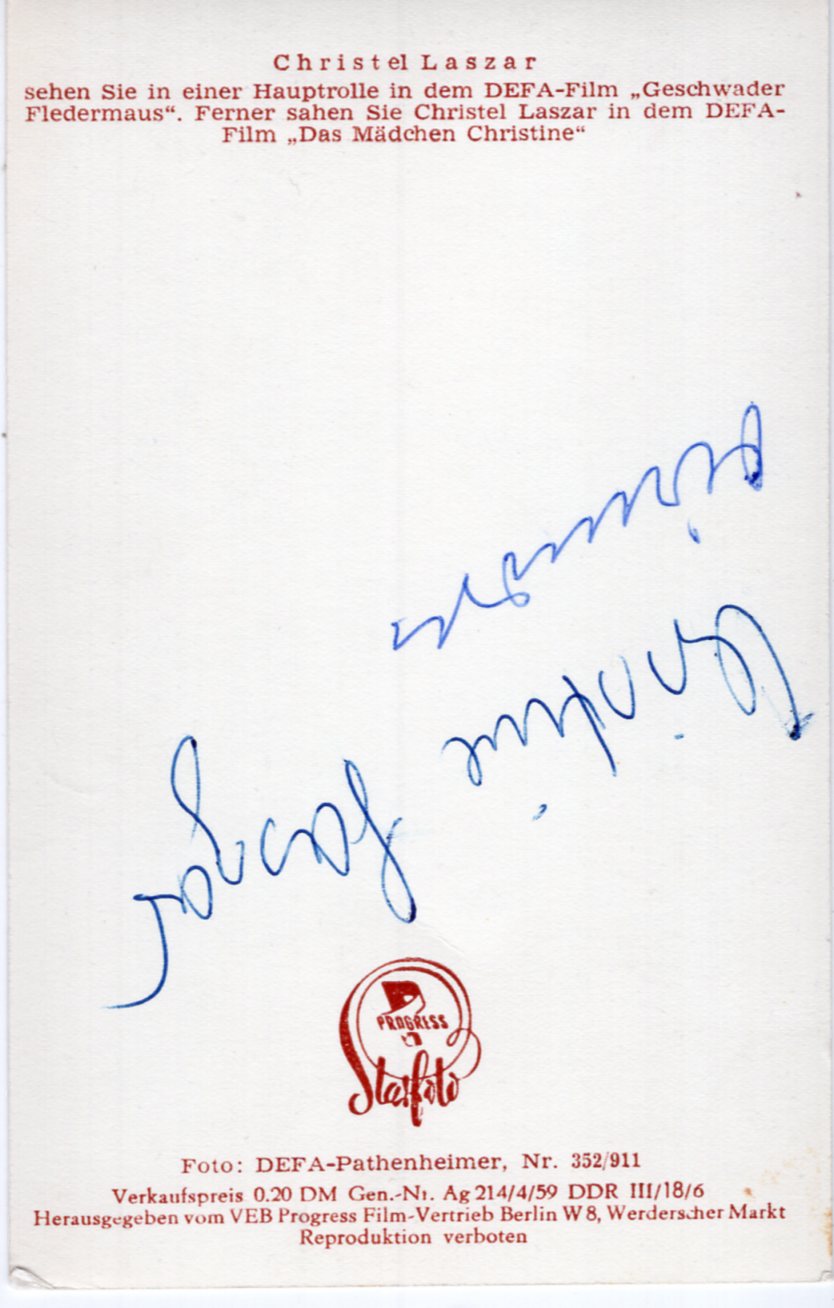 Christel Laszar
sehen Sie in einer Hauptrolle in dem DEFA-Film „Geschwader
Fledermaus“. Ferner sahen Sie Christel Laszar in dem DEFA-
Film „Das Mädchen Christine“
PROGRESS
Starfoto
Foto: DEFA-Pathenheimer, Nr. 352/911
Verkaufspreis 0.20 DM Gen.-Nr. Ag 214/4/59 DDR III/18/6
Herausgegeben vom VEB Progress Film-Vertrieb Berlin W 8, Werderscher Markt
Reproduktion verboten